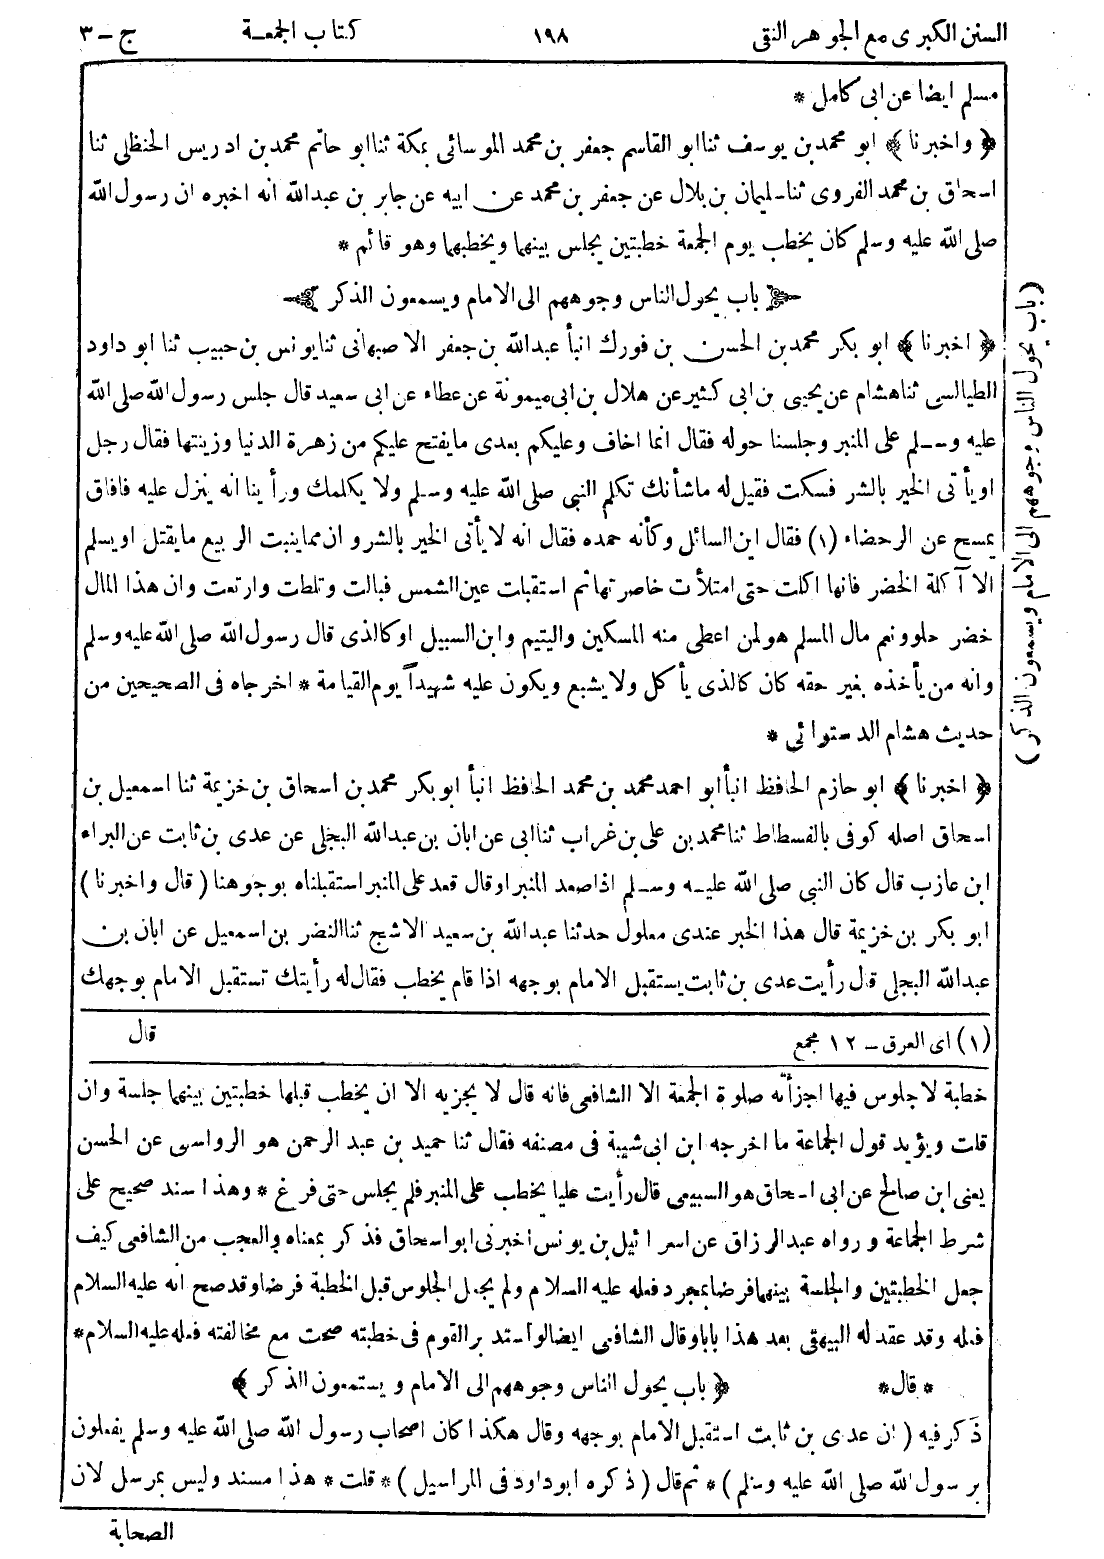 السنن الكبرى مع الجوهر النقى ١٩٨ كتاب الجمعة ج - ٣
مسلم ايضا عن ابى كامل *
﴿ واخبرنا ﴾ ابو محمد بن يوسف ثنا ابو القاسم جعفر بن محمد الموسائى بمكة ثنا ابو حاتم محمد بن ادريس الحنظلى ثنا
اسحاق بن محمد الفروى ثنا سليمان بن بلال عن جعفر بن محمد عن ابيه عن جابر بن عبدالله انه اخبره ان رسول الله
صلى الله عليه وسلم كان يخطب يوم الجمعة خطبتين يجلس بينهما ويخطبهما وهو قائم *
﴿ باب يحول الناس وجوههم الى الامام ويسمعون الذكر ﴾
﴿ اخبرنا ﴾ ابو بكر محمد بن الحسن بن فورك انبأ عبدالله بن جعفر الاصبهانى ثنا يونس بن حبيب ثنا ابو داود
الطيالسى ثنا هشام عن يحيى بن ابى كثير عن هلال بن ابى ميمونة عن عطاء عن ابى سعيد قال جلس رسول الله صلى الله
عليه وسلم على المنبر وجلسنا حوله فقال انما اخاف وعليكم بعدى ما يفتح عليكم من زهرة الدنيا وزينتها فقال رجل
او يأتى الخير بالشر فسكت فقيل له ما شأنك تكلم النبى صلى الله عليه وسلم ولا يكلمك ورأينا انه ينزل عليه فافاق
يمسح عن الرحضاء (١) فقال اين السائل وكأنه حمده فقال انه لا يأتى الخير بالشر وان مما ينبت الربيع ما يقتل او يسلم
الا آكلة الخضر فانها اكلت حتى امتلأت خاصرتها ثم استقبلت عين الشمس فبالت وثلطت وارتعت وان هذا المال
خضر حلو ونعم مال المسلم هو لمن اعطى منه المسكين واليتيم وابن السبيل او كالذى قال رسول الله صلى الله عليه وسلم
وانه من يأخذه بغير حقه كان كالذى يأكل ولا يشبع ويكون عليه شهيداً يوم القيامة * اخرجاه فى الصحيحين من
حديث هشام الدستوائى *
﴿ اخبرنا ﴾ ابو حازم الحافظ انبأ ابو احمد محمد بن محمد الحافظ انبأ ابو بكر محمد بن اسحاق بن خزيمة ثنا اسمعيل بن
اسحاق اصله كوفى بالفسطاط ثنا محمد بن على بن غراب ثنا ابى عن ابان بن عبدالله البجلى عن عدى بن ثابت عن البراء
ابن عازب قال كان النبى صلى الله عليه وسلم اذا صعد المنبر او قال قعد على المنبر استقبلناه بوجوهنا ( قال واخبرنا )
ابو بكر بن خزيمة قال هذا الخبر عندى معلول حدثنا عبدالله بن سعيد الاشج ثنا النضر بن اسمعيل عن ابان بن
عبدالله البجلى قال رأيت عدى بن ثابت يستقبل الامام بوجهه اذا قام يخطب فقال له رأيتك تستقبل الامام بوجهك
قال
(١) اى العرق - ١٢ مجمع
خطبة لا جلوس فيها اجزأته صلوة الجمعة الا الشافعى فانه قال لا يجزيه الا ان يخطب قبلها خطبتين بينهما جلسة وان
قلت ويؤيد قول الجماعة ما اخرجه ابن ابى شيبة فى مصنفه فقال ثنا حميد بن عبد الرحمن هو الرواسى عن الحسن
يعنى ابن صالح عن ابى اسحاق هو السبيعى قال رأيت عليا يخطب على المنبر فلم يجلس حتى فرغ * وهذا سند صحيح على
شرط الجماعة ورواه عبدالرزاق عن اسرائيل بن يونس اخبرنى ابو اسحاق فذكر بمعناه والعجب من الشافعى كيف
جعل الخطبتين والجلسة بينهما فرضا بمجرد فعله عليه السلام ولم يجعل الجلوس قبل الخطبة فرضا وقد صح انه عليه السلام
فعله وقد عقد له البيهقى بعد هذا بابا وقال الشافعى ايضا لو استدبر القوم فى خطبته صحت مع مخالفته فعله عليه السلام *
* قال * ﴿ باب يحول الناس وجوههم الى الامام ويستمعون الذكر ﴾
ذكر فيه ( ان عدى بن ثابت استقبل الامام بوجهه وقال هكذا كان اصحاب رسول الله صلى الله عليه وسلم يفعلون
برسول الله صلى الله عليه وسلم ) * ثم قال ( ذكره ابو داود فى المراسيل ) * قلت * هذا مسند وليس بمرسل لان
الصحابة
( باب يحول الناس وجوههم الى الامام ويسمعون الذكر )